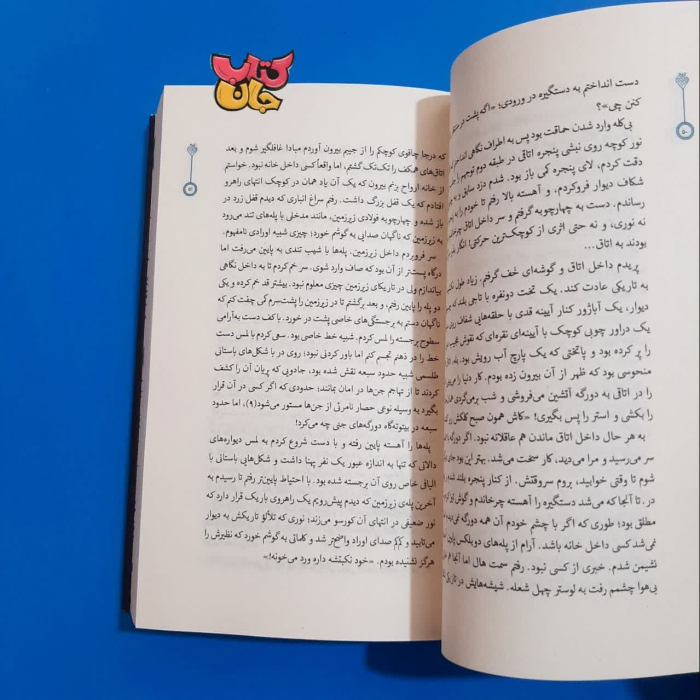 کتاب
جان
۵۰
دست انداختم به دستگیره در ورودی؛ «اگه پشت در منتظر
کنن چی»؟
بی‌کله وارد شدن حماقت بود پس به اطراف نگاهی انداختم
نور کوچه روی نبشی پنجره اتاقی در طبقه دوم توجهم را
دقت کردم، لای پنجره کمی باز بود. شدم دزد سابق و
شکاف دیوار فروکردم، و آهسته بالا رفتم تا خودم را به
رساندم. دست به چهارچوبه گرفتم و سر داخل اتاق
نه نوری، و نه حتی اثری از کوچک‌ترین حرکتی! انگار
بودند به اتاق...
پریدم داخل اتاق و گوشه‌ای خَف گرفتم. زیاد طول
به تاریکی عادت کند. یک تخت دونفره با تاجی بلند
دیوار، یک آباژور کنار آیینه قدی با حلقه‌هایی شفاف
یک دراور چوبی کوچک با آیینه‌ای نقره‌ای که نقوش
را پر کرده بود و پاتختی که یک پارچ آب رویش بود.
منحوسی بود که ظهر از آن بیرون زده بودم. کار دنیا را
را در اتاقی به دورگه آتشین می‌فروشی و شب برمی‌گردی
را بکشی و استر را پس بگیری! «کاش همون صبح
به هر حال داخل اتاق ماندن هم عاقلانه نبود. اگر
سر می‌رسید و مرا می‌دید، کار سخت می‌شد. بهتر این بود
شوم تا وقتی خوابید، بروم سروقتش. از کنار پنجره بلند
در. تا آنجا که می‌شد دستگیره را آهسته چرخاندم و گوش
مطلق بود؛ طوری که اگر با چشم خودم آن همه دورگه
نمی‌شد کسی داخل خانه باشد. آرام از پله‌های دوبلکس
نشیمن شدم. خبری از کسی نبود. رفتم سمت هال اما آنجا هم
بی‌هوا چشمم رفت به لوستر چهل شعله. شیشه‌هایش در
۵۱
که درجا چاقوی کوچکم را از جیبم بیرون آوردم مبادا غافلگیر شوم و بعد
اتاق‌های همکف را تک‌تک گشتم، اما واقعاً کسی داخل خانه نبود. خواستم
از خانه ارواح بزنم بیرون که یک آن یاد همان در کوچک انتهای راهرو
افتادم که یک قفل بزرگ داشت. رفتم سراغ انباری که دیدم قفل زرد در
باز شده و چهارچوبه فولادی زیرزمین، مانند مدخلی با پله‌های تند می‌رود
به زیرزمین که ناگهان صدایی به گوشم خورد؛ چیزی شبیه اورادی نامفهوم.
سر فروبردم داخل زیرزمین. پله‌ها با شیب تندی به پایین می‌رفت اما
درگاه پست‌تر از آن بود که صاف وارد شوی. سر خم کردم تا به داخل نگاهی
بیاندازم ولی در تاریکای زیرزمین چیزی معلوم نبود. بیشتر قد خم کرده و یکی
دو پله را پایین رفتم، و بعد برگشتم تا در زیرزمین را پشت‌سرم کمی جفت کنم که
ناگهان دستم به برجستگی‌های خاصی پشت در خورد. با کف دست به‌آرامی
سطوح برجسته را لمس کردم. شبیه خط خاصی بود. سعی کردم با لمس دست
خط را در ذهنم تجسم کنم اما باور کردنی نبود؛ روی در با شکل‌های باستانی
طلسمی شبیه حدود سبعه نقش شده بود، جادویی که پریان آن را کشف
کردند تا از تهاجم جن‌ها در امان بمانند؛ حدودی که اگر کسی در آن قرار
بگیرد به وسیله نوعی حصار نامرئی از جن‌ها مستور می‌شود(۹)، اما حدود
سبعه در بیتوته‌گاه دورگه‌های جنی چه می‌کرد!
پله‌ها را آهسته پایین رفته و با دست شروع کردم به لمس دیواره‌های
دالانی که تنها به اندازه عبور یک نفر پهنا داشت و شکل‌هایی باستانی با
الیافی خاص روی آن برجسته شده بود. با احتیاط پایین‌تر رفتم تا رسیدم به
آخرین پله‌ی زیرزمین که دیدم پیش‌رویم یک راهروی باریک قرار دارد که
نور ضعیفی در انتهای آن کورسو می‌زند؛ نوری که تلألؤ تاریکش به دیوار
می‌تابید و کم‌کم صدای اوراد واضح‌تر شد و کلماتی به گوشم خورد که نظیرش را
هرگز نشنیده بودم. «خود نکبتشه داره ورد می‌خونه!»